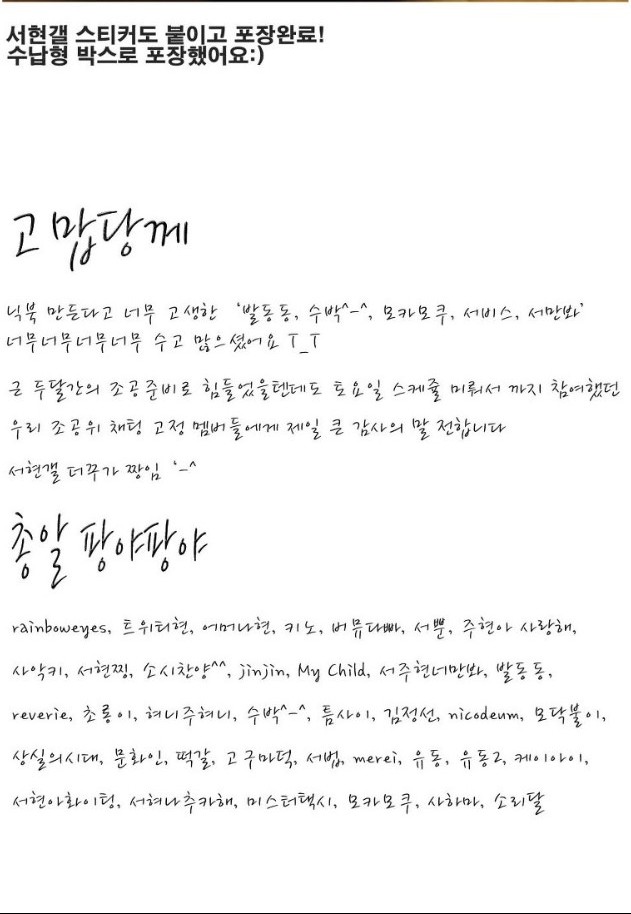 서현갤 스티커도 붙이고 포장완료!
수납형 박스로 포장했어요:)
고맙당께
닉북 만든다고 너무 고생한 '발동동, 수박^-^, 모카모쿠, 서비스, 서만봐'
너무너무너무너무 수고 많으셨어요 T_T
근 두달간의 조공준비로 힘들었을텐데도 토요일 스케쥴 미뤄서 까지 참여했던
우리 조공위 채팅 고정 멤버들에게 제일 큰 감사의 말 전합니다
서현갤 더쿠가 짱임 '-^
총알 팡야팡야
rainboweyes, 트위터현, 어머나현, 키노, 버뮤다빠, 서뿐, 주현아 사랑해,
사악키, 서현찡, 소시찬양^^, jinjin, My Child, 서주현너만봐, 발동동,
reverie, 초롱이, 혀니주혀니, 수박^-^, 틈사이, 김정선, nicodeum, 모닥불이,
상실의시대, 문화인, 떡갈, 고구마덕, 서법, merei, 유동, 유동2, 케이아이,
서현아화이팅, 서혀나추카해, 미스터택시, 모카모쿠, 사하마, 소리달